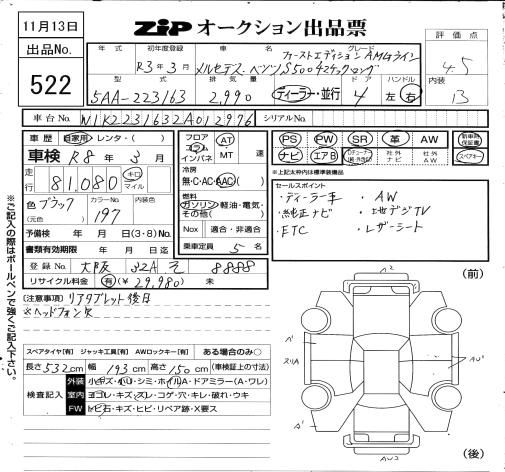 11月13日
ZiP オークション出品票
出品No. 522
年式 初年度登録 車名 グレード ドア ハンドル 評価点
R3年3月 メルセデス・ベンツ S500 4マチックロング
ファーストエディション AMGライン
4.5
型式 排気量 内装
5AA-223163 2,990 ディーラー・並行 4 左 右 B
車台No. W1K2231632A012976 シリアルNo.
車歴 自家用・レンタ・( )
車検 R8年3月
走行 81,080 キロ マイル
色 ブラック (元色) カラーNo. 197 内装色
予備検 年 月 日(3・8)No.
書類有効期限 年 月 日迄
フロア コラム インパネ AT MT 速
冷房 無・C・AC・AAC( )
燃料 ガソリン・軽油・電気・その他( )
Nox 適合・非適合
乗車定員 5 名
PS PW SR 革 AW 新車時保証書
ナビ エアB 社外ナビ 社外AW スペアキー
※上記太枠内は標準装備品
登録No. 大阪 32A え 8888
リサイクル料金 有 (¥29,980)無
セールスポイント
・ディーラー車 ・AW
・純正ナビ ・地デジTV
・ETC ・レザーシート
(注意事項) リアタブレット後日
※ヘッドフォン欠
スペアタイヤ[有] ジャッキ工具[有] AWロックキー[有] ある場合のみ○
長さ532cm 幅193cm 高さ150cm (車検証の寸法)
検査記入
外装 小キズ・小U・シミ・ホイルA・ドアミラー(A・ワレ)
室内 ヨゴレ・キズ・スレ・コゲ・穴・キレ・破れ・ウキ
FW トビ石・キズ・ヒビ・リペア跡・X要ス
(前)
A2
A1
スリA
A1
AU1
AU2
(後)
※ご記入の際はボールペンで強くご記入下さい。